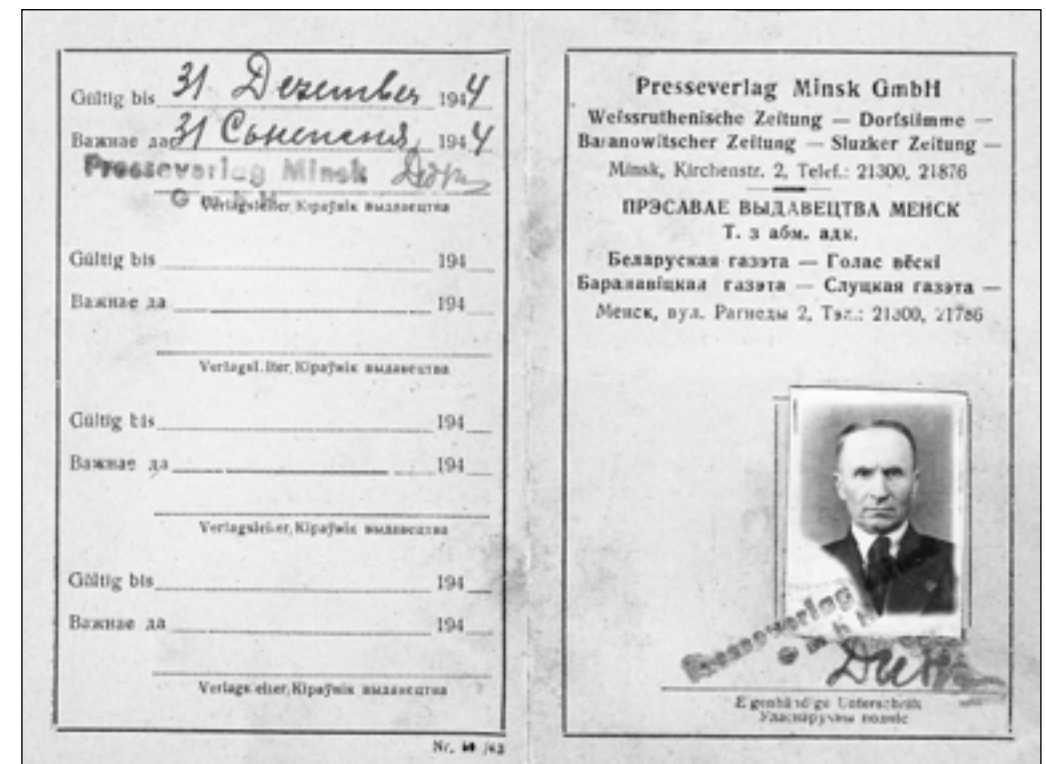 Gültig bis 31 Dezember 1944
Важнае да 31 Сьнежня 1944
Presseverlag Minsk
G m b H
Verlagsleiter, Кіраўнік выдавецтва
Gültig bis 194
Важнае да 194
Verlagsleiter, Кіраўнік выдавецтва
Gültig bis 194
Важнае да 194
Verlagsleiter, Кіраўнік выдавецтва
Gültig bis 194
Важнае да 194
Verlagsleiter, Кіраўнік выдавецтва
Nr. /43
Presseverlag Minsk GmbH
Weissruthenische Zeitung — Dorfstimme —
Baranowitscher Zeitung — Sluzker Zeitung —
Minsk, Kirchenstr. 2, Telef.: 21300, 21876
ПРЭСАВАЕ ВЫДАВЕЦТВА МЕНСК
Т. з абм. адк.
Беларуская газэта — Голас вёскі
Баранавіцкая газэта — Слуцкая газэта —
Менск, вул. Рагнеды 2, Тэл.: 21300, 21786
Presseverlag
G m b H
Eigenhändige Unterschrift
Уласнаручны подпіс